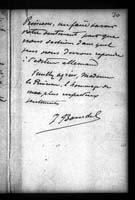 20
Princesse, me faire savoir
votre sentiment pour que
nous sachions dans quel
sens nous devrons répondre
à l'éditeur allemand.
Veuillez agréer, Madame
la Princesse, l'hommage de
mes plus respectueux
sentiments